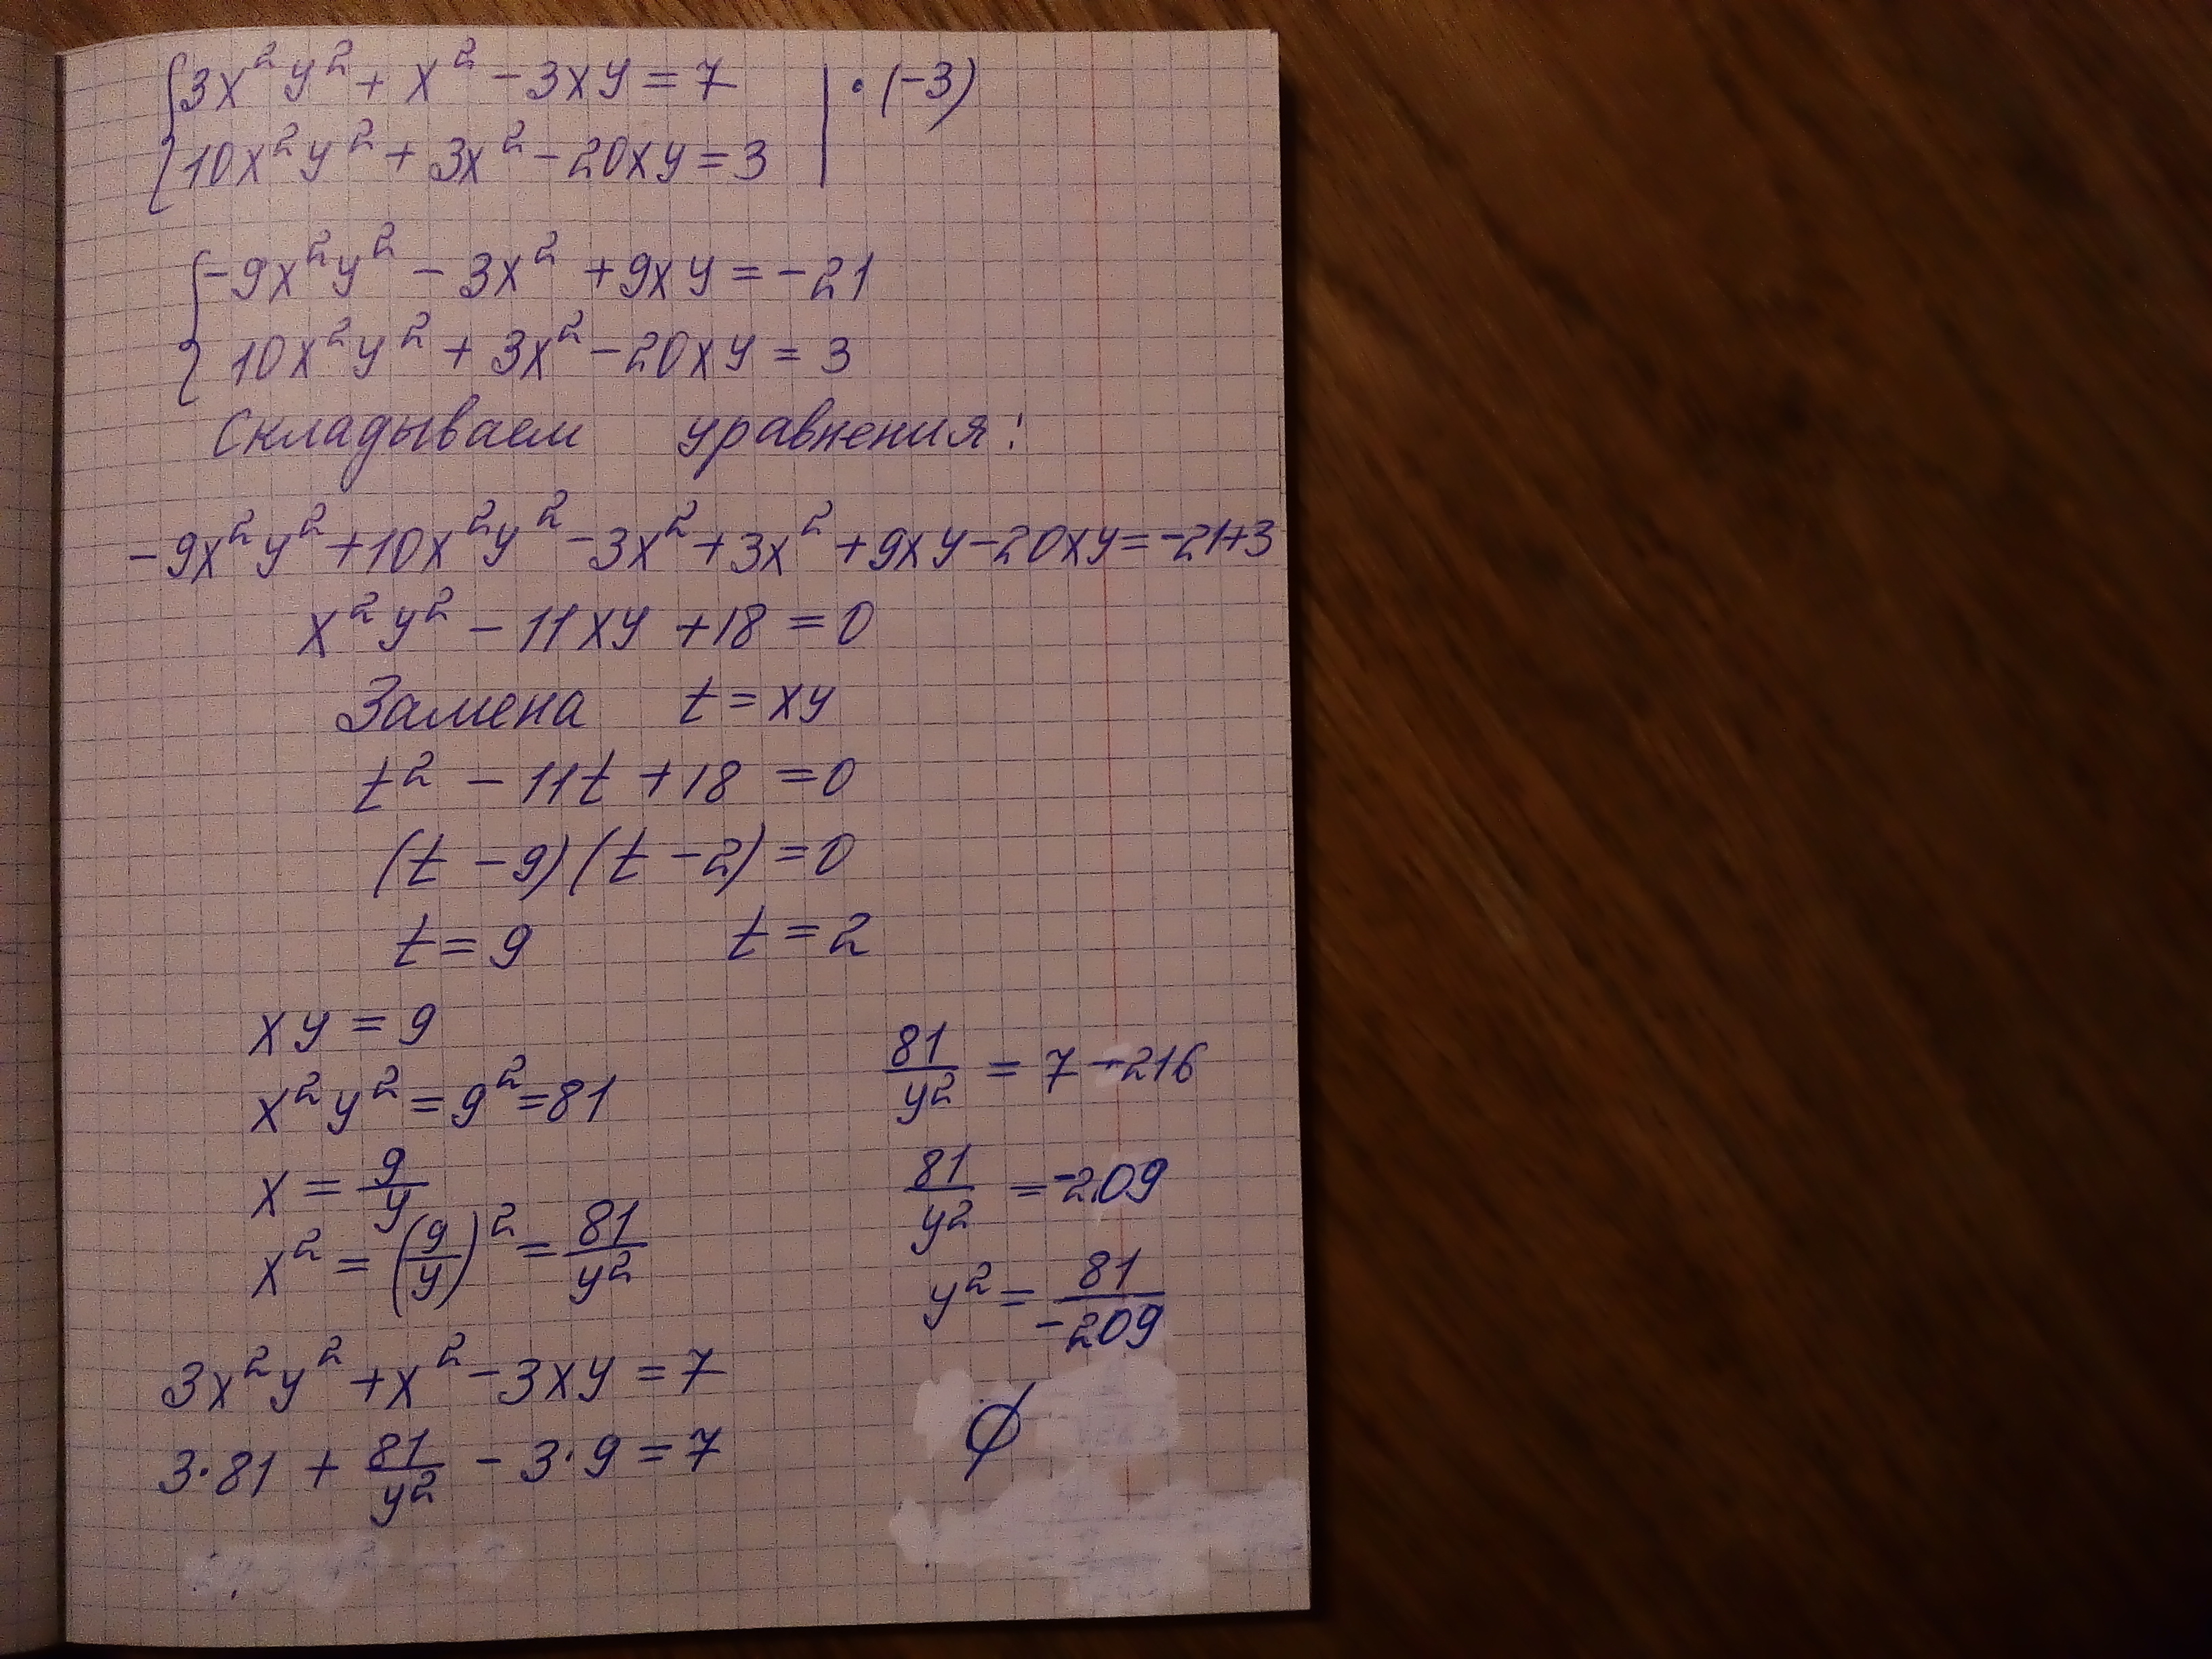 {3x²y² + x² - 3xy = 7 | · (-3)
{10x²y² + 3x² - 20xy = 3
{-9x²y² - 3x² + 9xy = -21
{10x²y² + 3x² - 20xy = 3
Складываем уравнения:
-9x²y² + 10x²y² - 3x² + 3x² + 9xy - 20xy = -21+3
x²y² - 11xy + 18 = 0
Замена t = xy
t² - 11t + 18 = 0
(t - 9)(t - 2) = 0
t = 9 t = 2
xy = 9
x²y² = 9² = 81
x = 9/y
x² = (9/y)² = 81/y²
3x²y² + x² - 3xy = 7
3·81 + 81/y² - 3·9 = 7
81/y² = 7 - 216
81/y² = -209
y² = 81/-209
∅